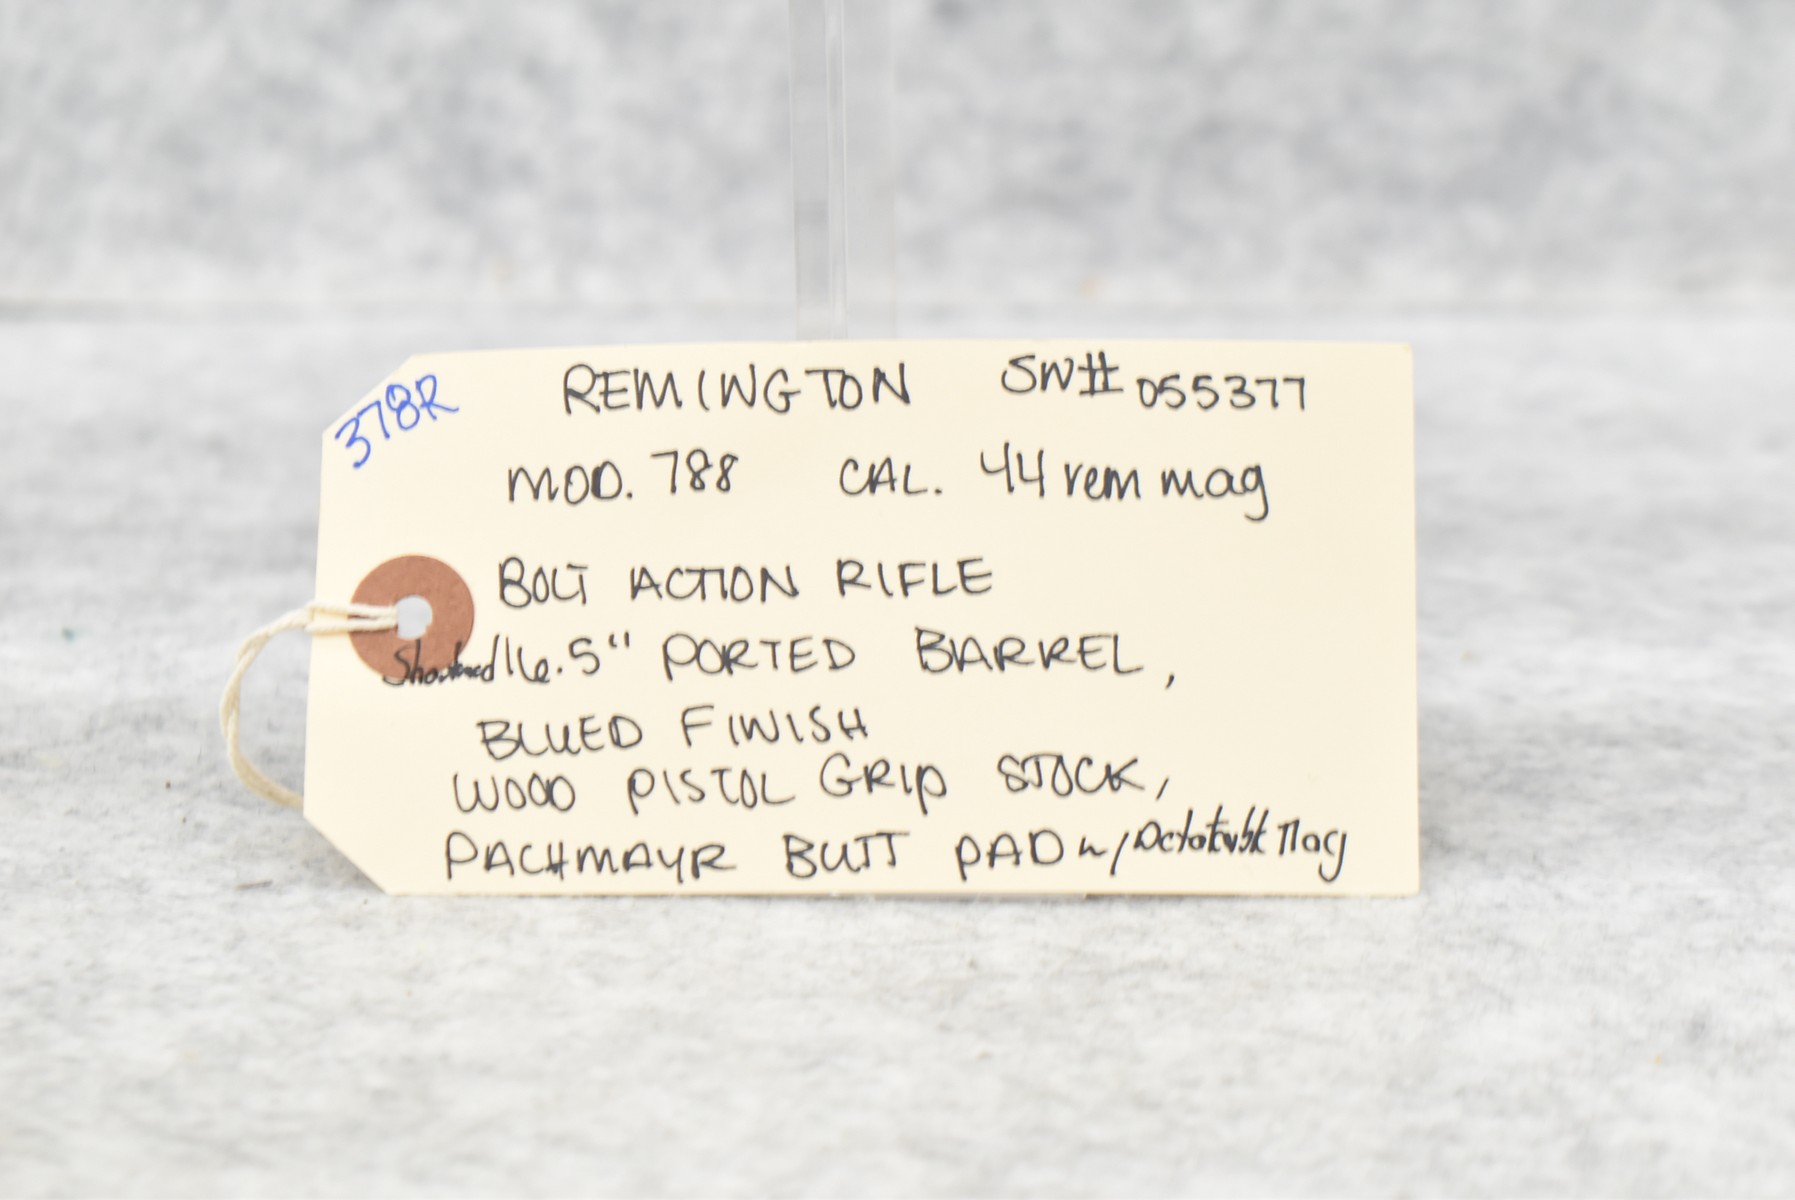 378R
REMINGTON SN# 055377
MOD. 788 CAL. 44 rem mag
BOLT ACTION RIFLE
Shortened 16.5" PORTED BARREL,
BLUED FINISH
WOOD PISTOL GRIP STOCK,
PACHMAYR BUTT PAD w/ Mag